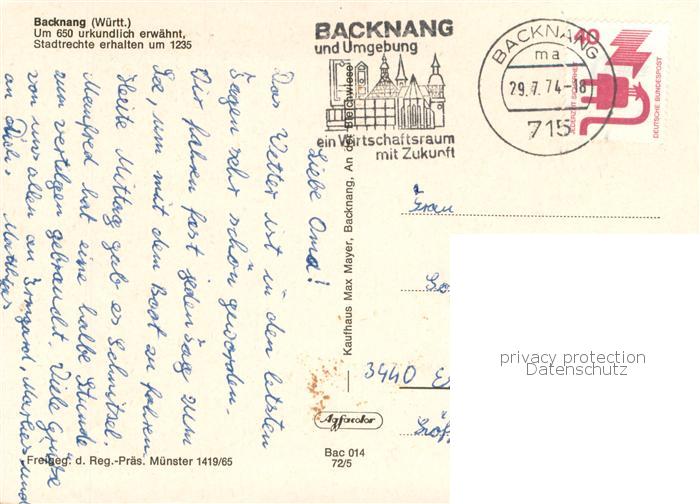 Backnang (Württ.)
Um 650 urkundlich erwähnt,
Stadtrechte erhalten um 1235
BACKNANG
und Umgebung
ein Wirtschaftsraum
mit Zukunft
BACKNANG
ma
29.7.74-18
715
40
JEDERZEIT SICHERHEIT
DEUTSCHE BUNDESPOST
Liebe Oma!
Das Wetter ist in den letzten
Tagen sehr schön geworden.
Wir fahren fast jeden Tag zum
See, um mit dem Boot zu fahren.
Heute Mittag gab es Schnitzel.
Manfred hat eine halbe Stunde
zum vertilgen gebraucht. Viele Grüße
von uns allen an Irmgard, Marlies und
an Dich. Matthias
Kaufhaus Max Mayer, Backnang, An der Bleichwiese
Frau
3440
Agfacolor
Bac 014
72/5
Freigeg. d. Reg.-Präs. Münster 1419/65
privacy protection
Datenschutz